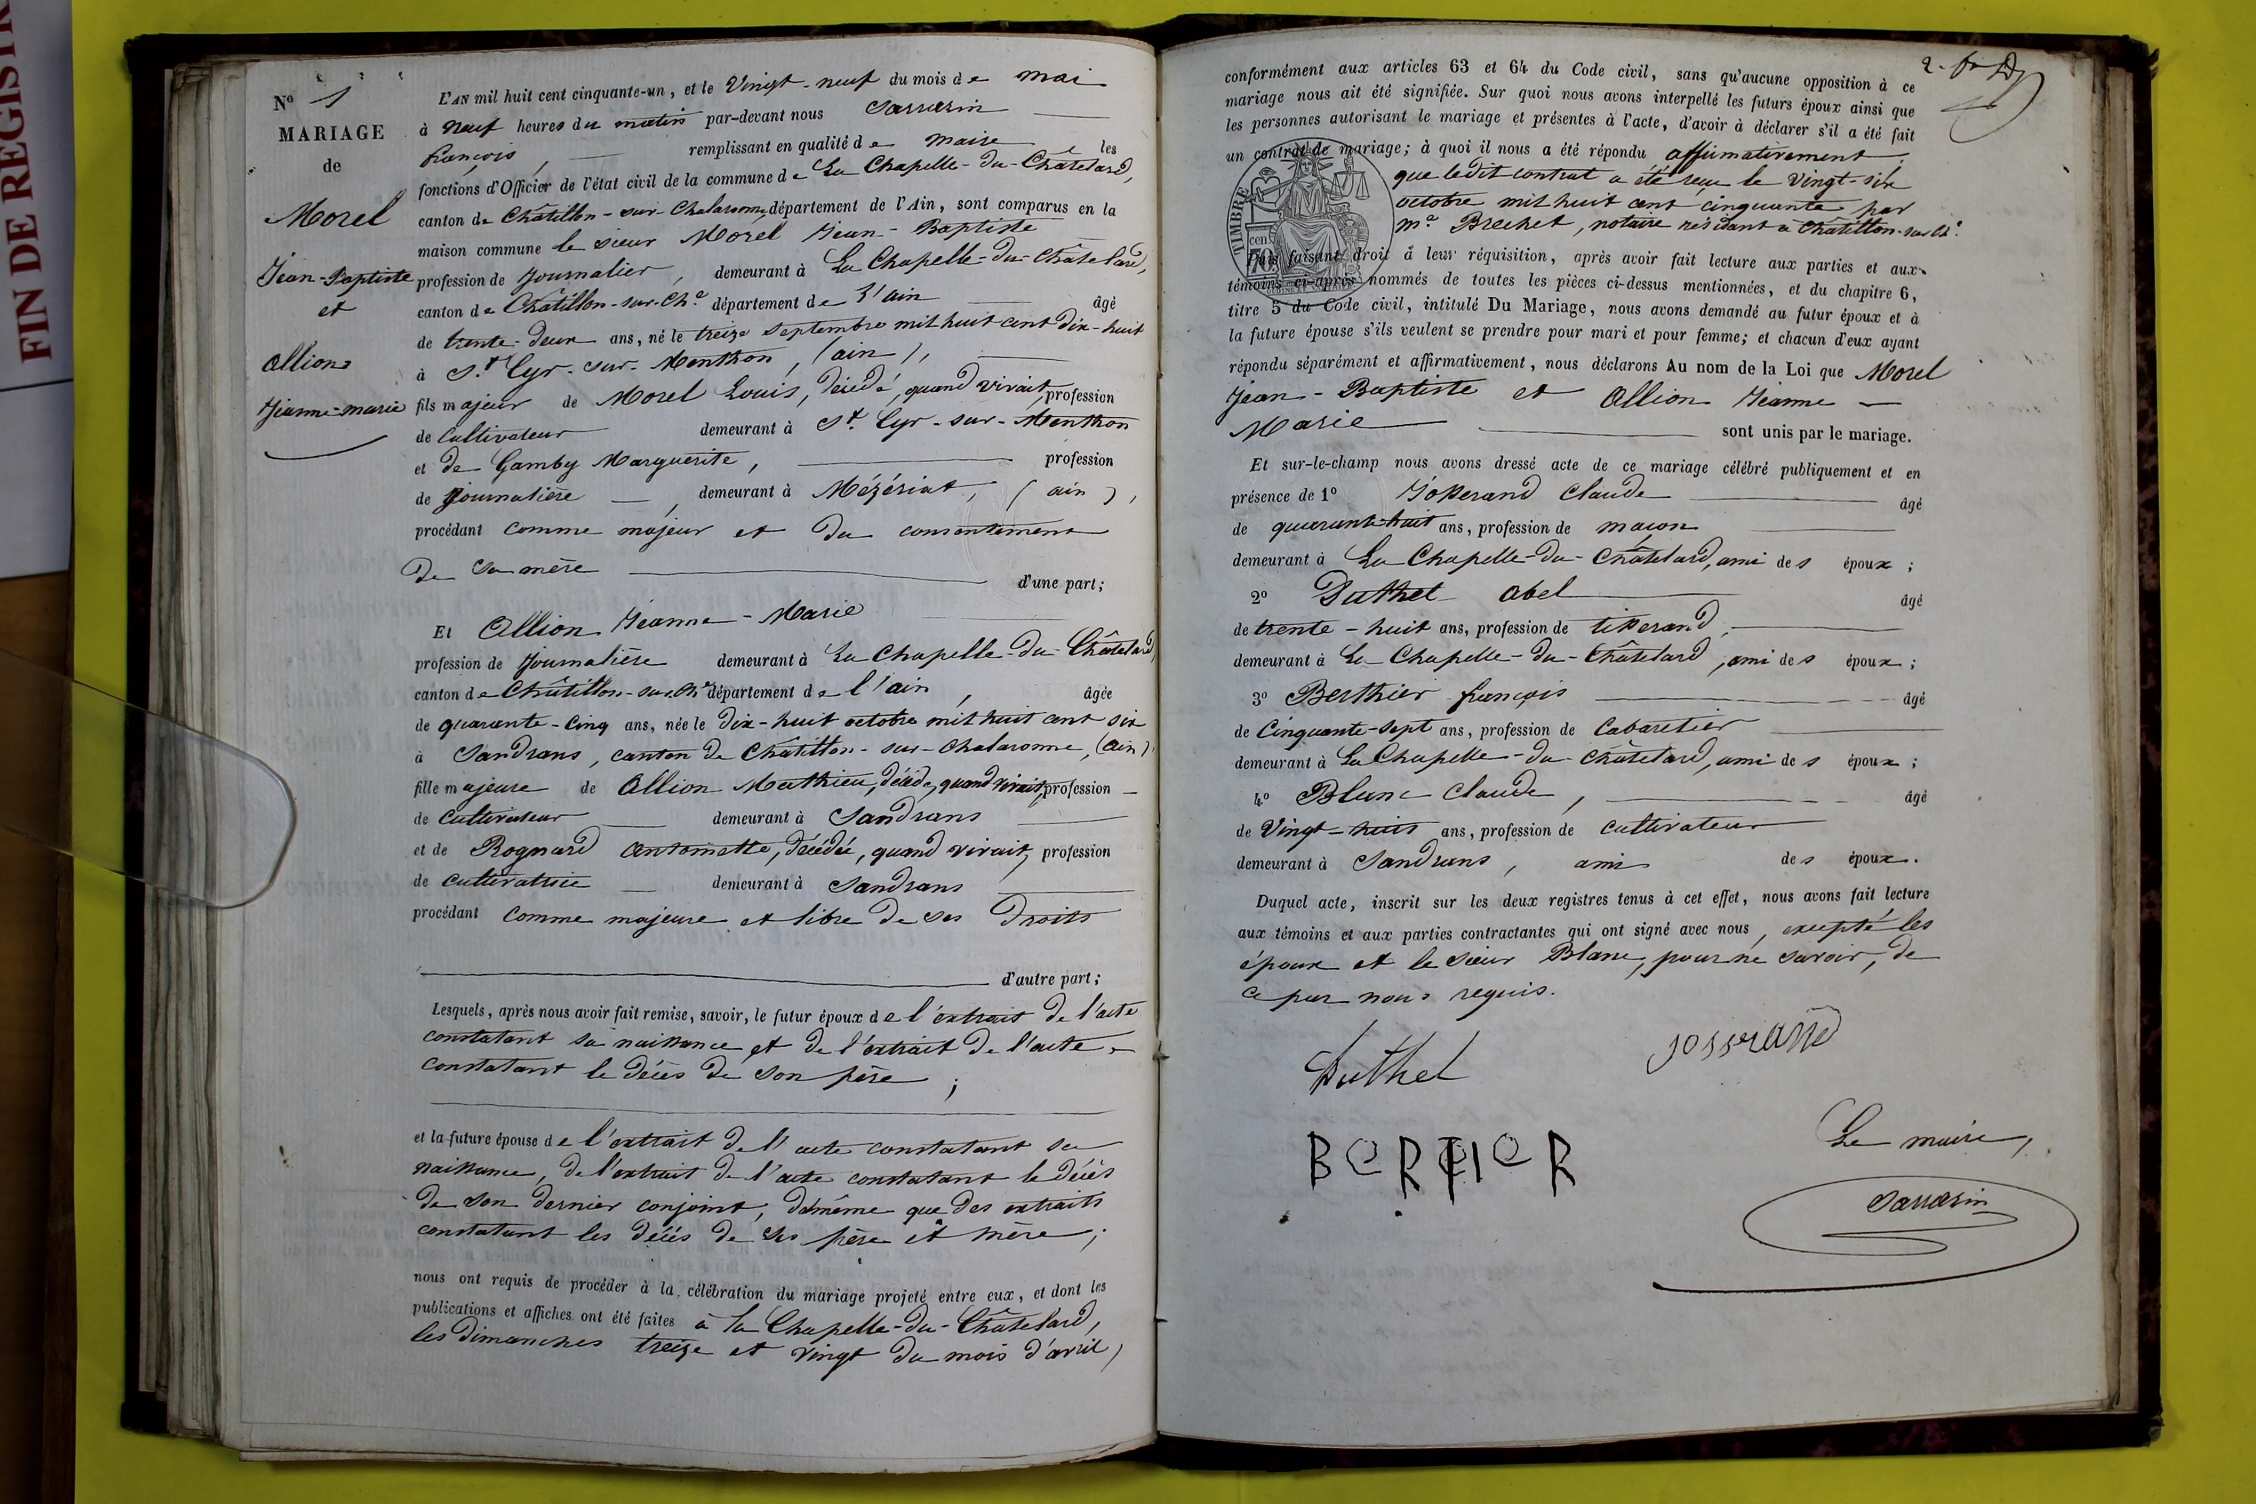 FIN DE REGISTR
Nº 1
MARIAGE
de
Morel
Jean-Baptiste
et
Allion
Jeanne-marie
L'AN mil huit cent cinquante-un, et le Vingt-neuf du mois de mai
à neuf heures du matin par-devant nous Sarrasin
françois, remplissant en qualité de maire les
fonctions d'Officier de l'état civil de la commune de La Chapelle-du-Châtelard,
canton de Châtillon-sur-Chalaronne département de l'Ain, sont comparus en la
maison commune le sieur Morel Jean-Baptiste
profession de Journalier, demeurant à La Chapelle-du-Châtelard,
canton de Châtillon-sur-Ch.e département de l'ain âgé
de trente-deux ans, né le treize septembre mil huit cent dix-huit
à S.t Cyr-sur-Menthon, (ain),
fils majeur de Morel Louis, décédé, quand vivait, profession
de Cultivateur demeurant à S.t Cyr-sur-Menthon
et de Gamby Marguerite, profession
de Journalière, demeurant à Mézériat, (ain),
procédant comme majeur et du consentement
de sa mère d'une part;
Et Allion Jeanne-Marie
profession de Journalière demeurant à La Chapelle-du-Châtelard,
canton de Châtillon-sur-Ch.e département de l'ain, âgée
de quarante-cinq ans, née le dix-huit octobre mil huit cent six
à Sandrans, canton de Châtillon-sur-Chalaronne, (ain),
fille majeure de Allion Mathieu, décédé, quand vivait, profession
de Cultivateur demeurant à Sandrans
et de Rognard antoinette, décédée, quand vivait, profession
de cultivatrice demeurant à Sandrans
procédant comme majeure et libre de ses droits
d'autre part;
Lesquels, après nous avoir fait remise, savoir, le futur époux de l'extrait de l'acte
constatant sa naissance et de l'extrait de l'acte
constatant le décès de son père;
et la future épouse de l'extrait de l'acte constatant sa
naissance, de l'extrait de l'acte constatant le décès
de son dernier conjoint, de même que des extraits
constatant les décès de ses père et mère;
nous ont requis de procéder à la célébration du mariage projeté entre eux, et dont les
publications et affiches ont été faites à La Chapelle-du-Châtelard,
les dimanches treize et vingt du mois d'avril,
conformément aux articles 63 et 64 du Code civil, sans qu'aucune opposition à ce
mariage nous ait été signifiée. Sur quoi nous avons interpellé les futurs époux ainsi que
les personnes autorisant le mariage et présentes à l'acte, d'avoir à déclarer s'il a été fait
un contrat de mariage; à quoi il nous a été répondu affirmativement
que ledit contrat a été reçu le vingt-six
octobre mil huit cent cinquante par
m.e Brechet, notaire résidant à Châtillon-sur-Ch.e
TIMBRE
70
cen.
Puis faisant droit à leur réquisition, après avoir fait lecture aux parties et aux
témoins ci-après nommés de toutes les pièces ci-dessus mentionnées, et du chapitre 6,
titre 5 du Code civil, intitulé Du Mariage, nous avons demandé au futur époux et à
la future épouse s'ils veulent se prendre pour mari et pour femme; et chacun d'eux ayant
répondu séparément et affirmativement, nous déclarons Au nom de la Loi que Morel
Jean-Baptiste et Allion Jeanne-
Marie sont unis par le mariage.
Et sur-le-champ nous avons dressé acte de ce mariage célébré publiquement et en
présence de 1º Josserand Claude âgé
de quarante-huit ans, profession de maçon
demeurant à La Chapelle-du-Châtelard, ami des époux;
2º Duthel abel âgé
de trente-huit ans, profession de tisserand,
demeurant à La Chapelle-du-Châtelard, ami des époux;
3º Berthier françois âgé
de Cinquante-sept ans, profession de Cabaretier
demeurant à La Chapelle-du-Châtelard, ami des époux;
4º Blanc Claude, âgé
de Vingt-huit ans, profession de cultivateur
demeurant à Sandrans, ami des époux.
Duquel acte, inscrit sur les deux registres tenus à cet effet, nous avons fait lecture
aux témoins et aux parties contractantes qui ont signé avec nous, excepté les
époux et le sieur Blanc, pour ne savoir, de
ce par nous requis.
Duthel
josserand
BERTIER
Le maire,
Sarrasin